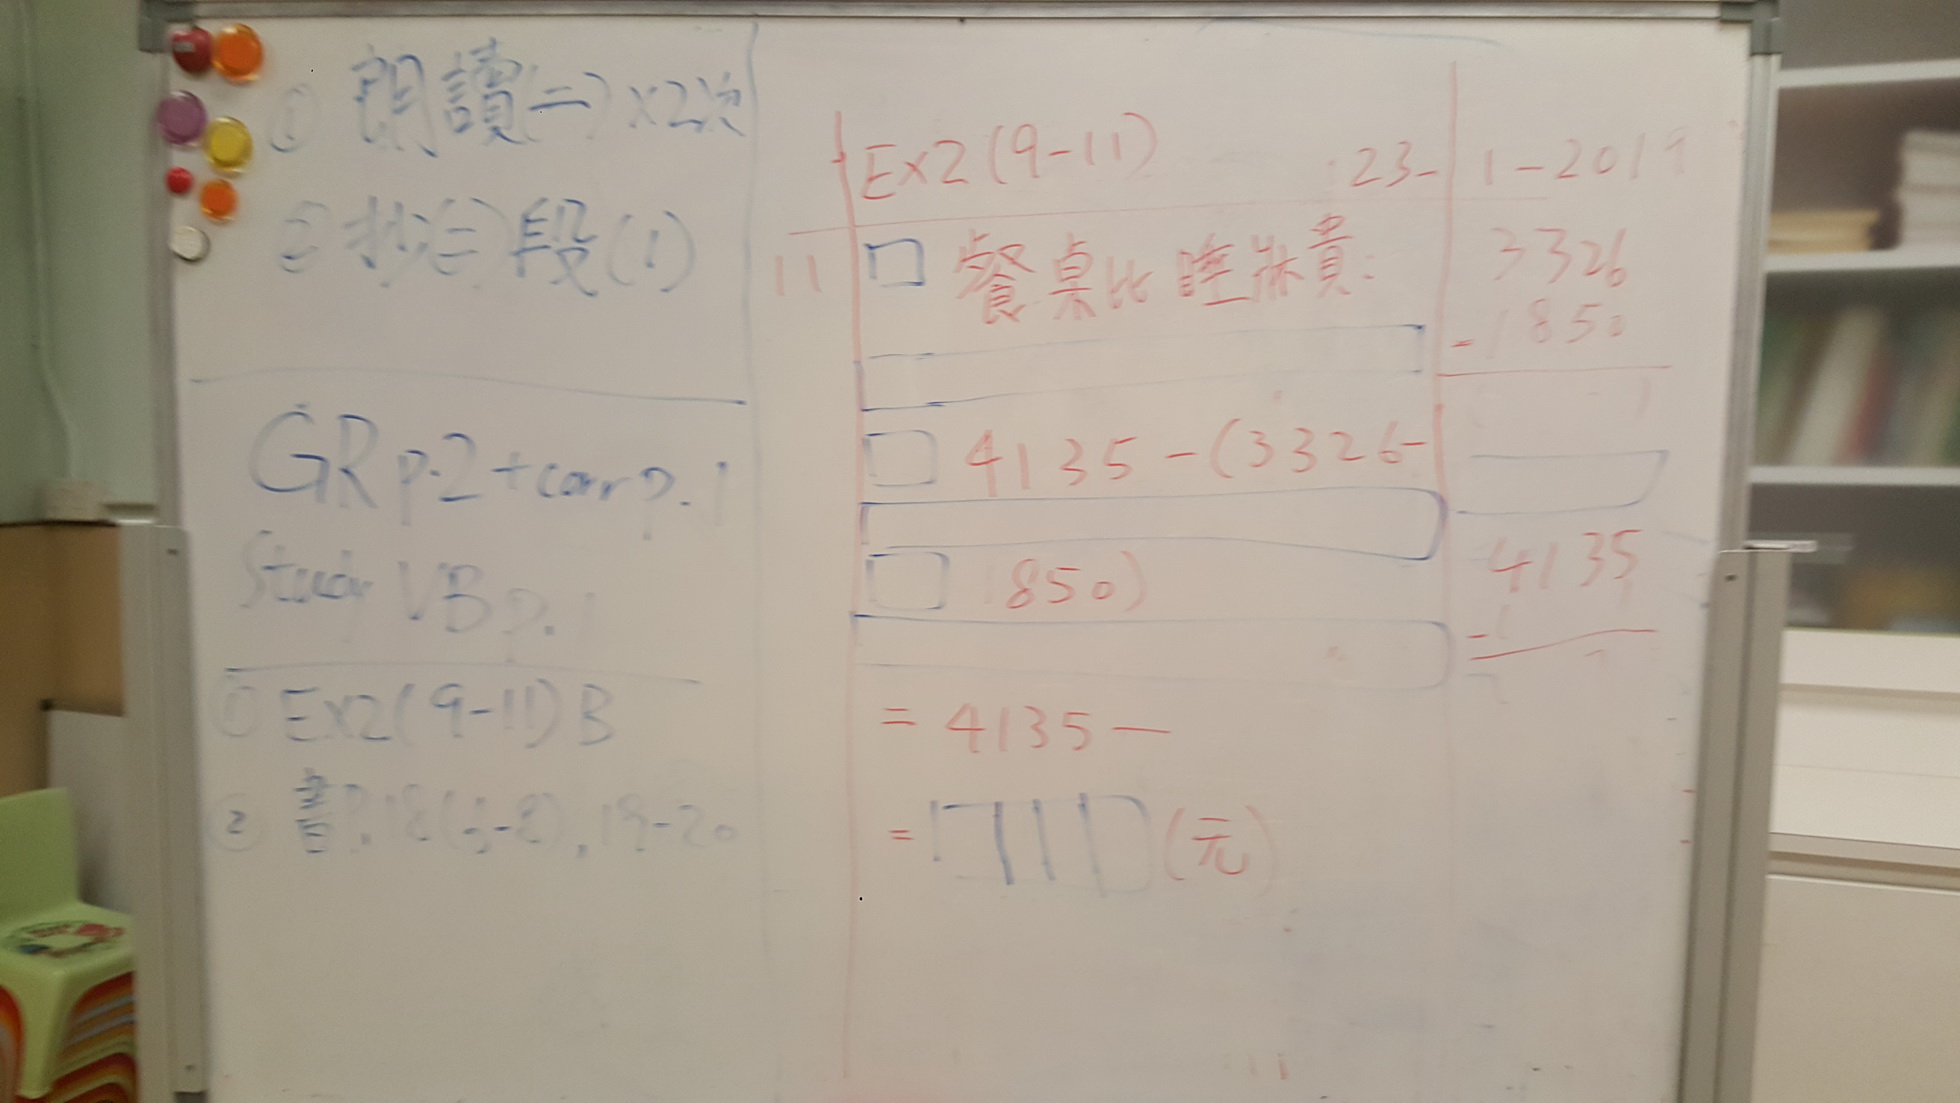 ① 朗讀(二)×2次
② 抄(三)段(1)
GR p.2 + corr p.1
Study VB p.1
① Ex2(9-11)B
② 書P.18(), 19-20
Ex2(9-11) 23-1-2019
11 □ 餐桌比睡牀貴:
□ 4135-(3326-
□ 1850)
= 4135-
= (元)
3326
-1850
4135
-1